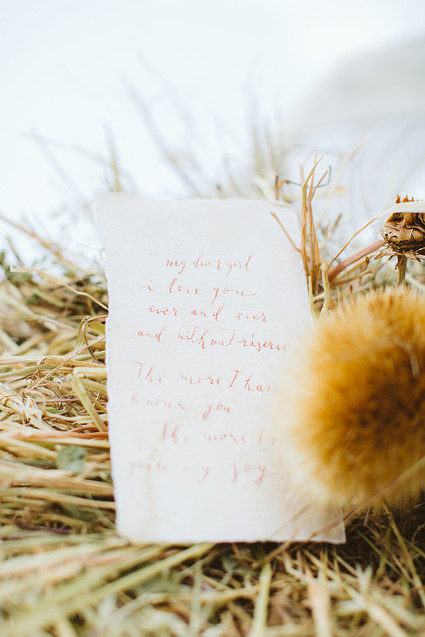 my dear girl
i love you
ever and ever
and without reserve
The more I have
known you
the more I
my joy